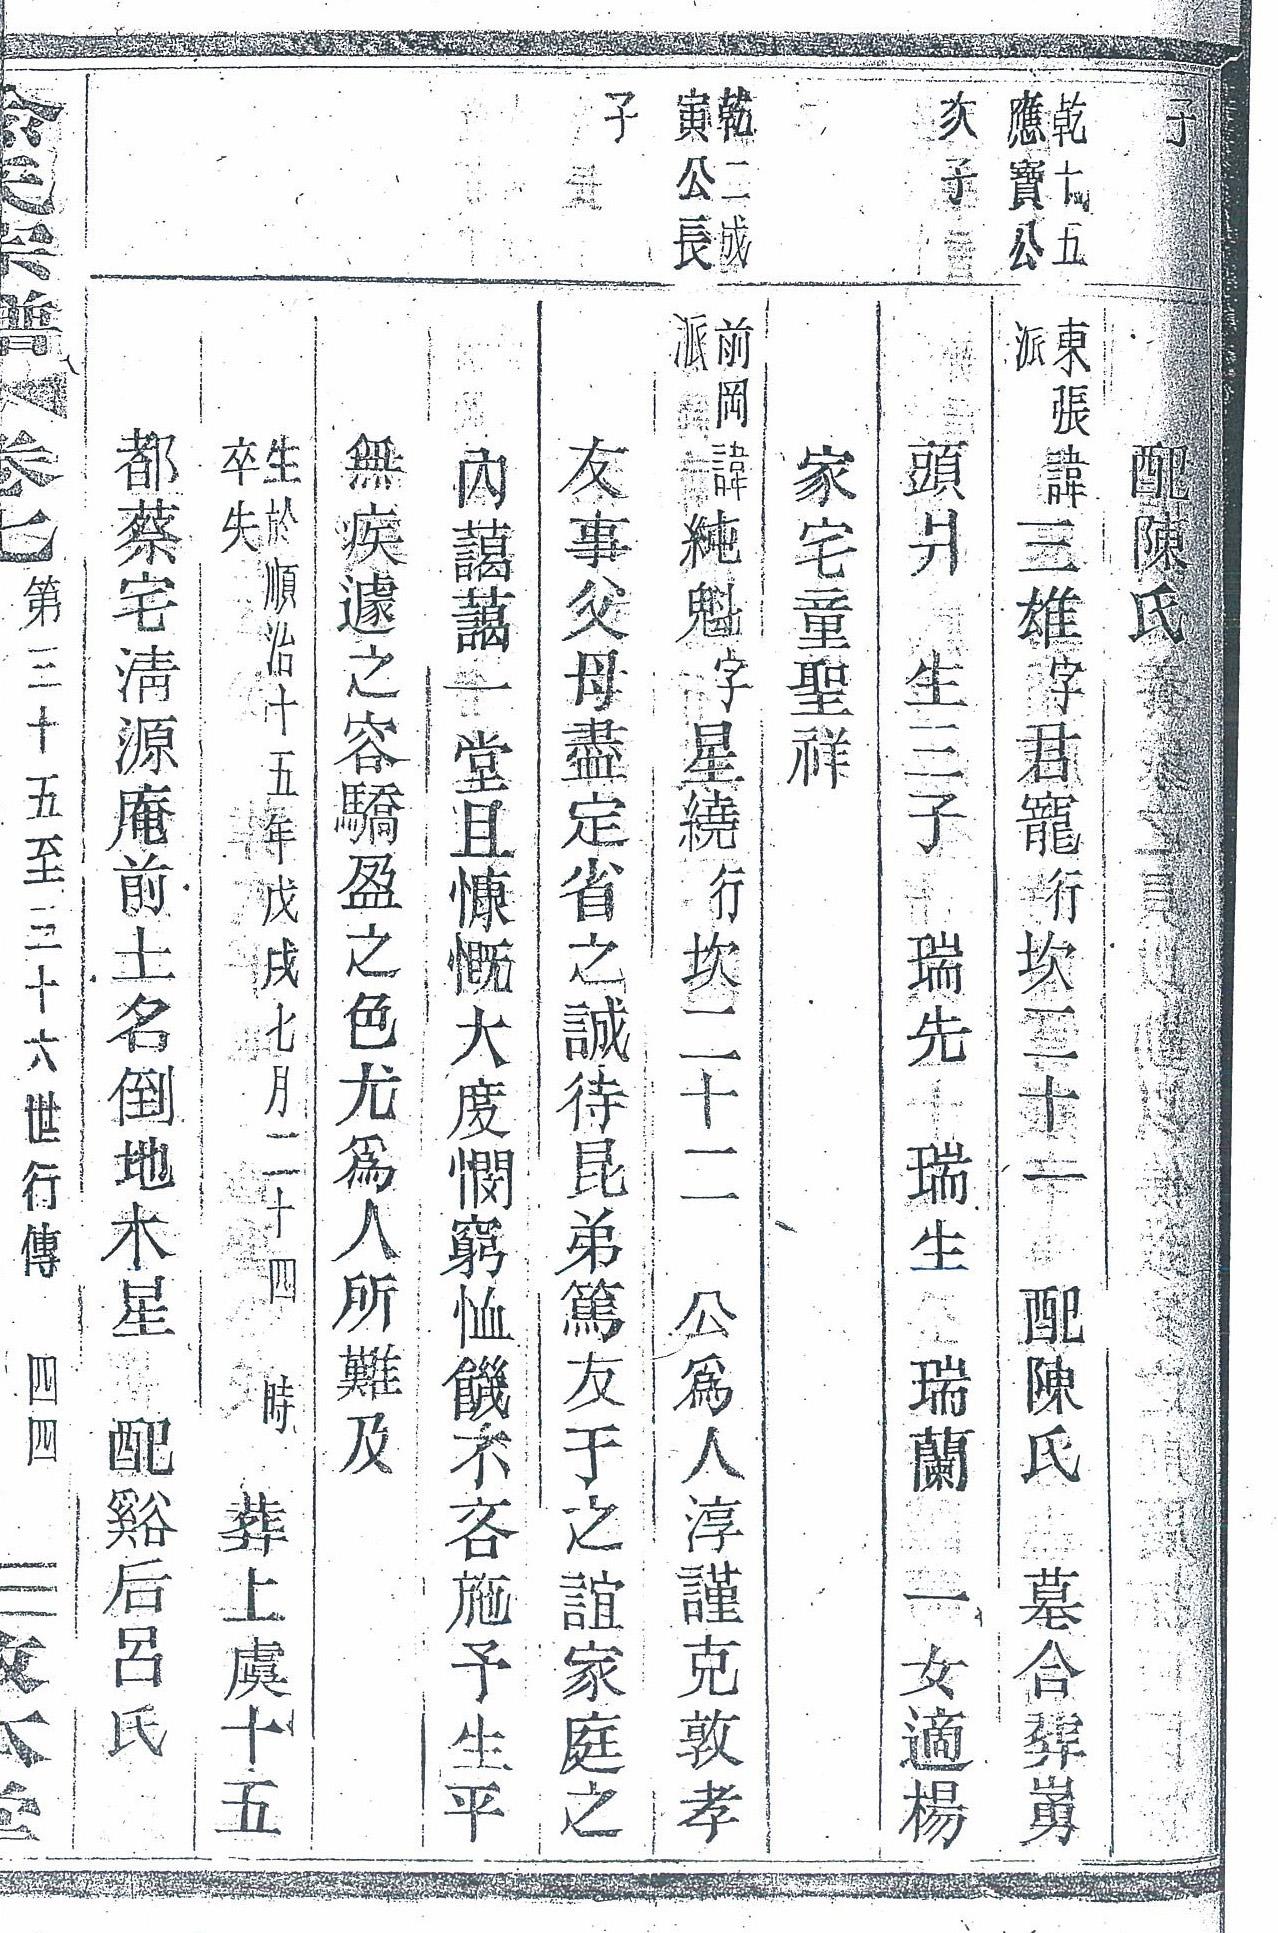 子
配陳氏
乾七五
應寶公
次子
東張
派
諱三雄字君寵行坎三十一 配陳氏 墓合葬
頭爿 生三子 瑞先 瑞生 瑞蘭 一女適楊
家宅童聖祥
乾二成
寅公長
子
前岡
派
諱純魁字星繞行坎二十二 公爲人淳謹克敦孝
友事父母盡定省之誠待昆弟篤友于之誼家庭之
內藹藹一堂且慷慨大度憫窮恤饑不吝施予生平
無疾遽之容驕盈之色尤爲人所難及
生於順治十五年戊戌七月二十四 時
卒失
葬上虞十五
都蔡宅淸源庵前土名倒地木星 配谿后呂氏
宗譜 卷七 第三十五至三十六世行傳 四四